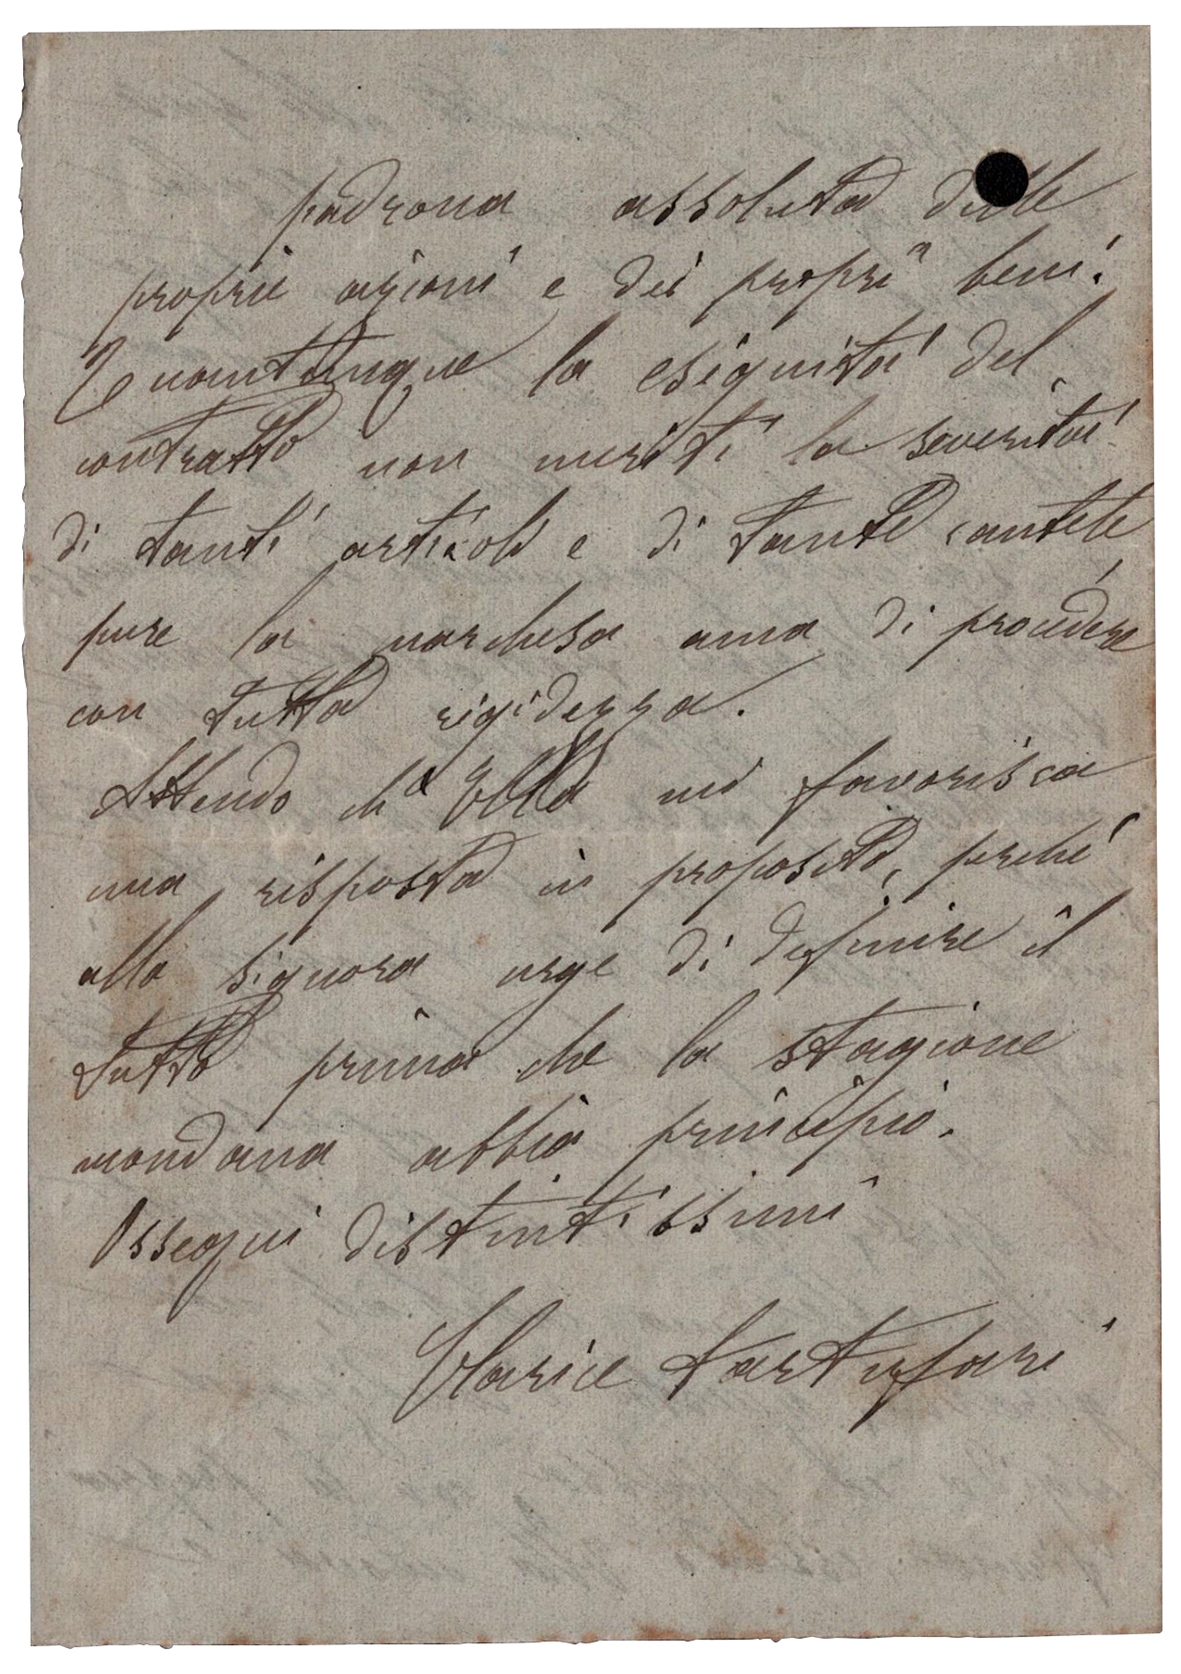 padrona assoluta delle
proprie azioni e dei propri beni.
Quantunque la esiguità del
contratto non meriti la severità
di tanti articoli e di tante cautele
pure la marchesa ama di procedere
con tutta rigidezza.
Attendo ch' Ella mi favorisca
una risposta in proposito, perché
alla signora urge di definire il
tutto prima che la stagione
mondana abbia principio.
Ossequi distintissimi
Clarice Tartufari